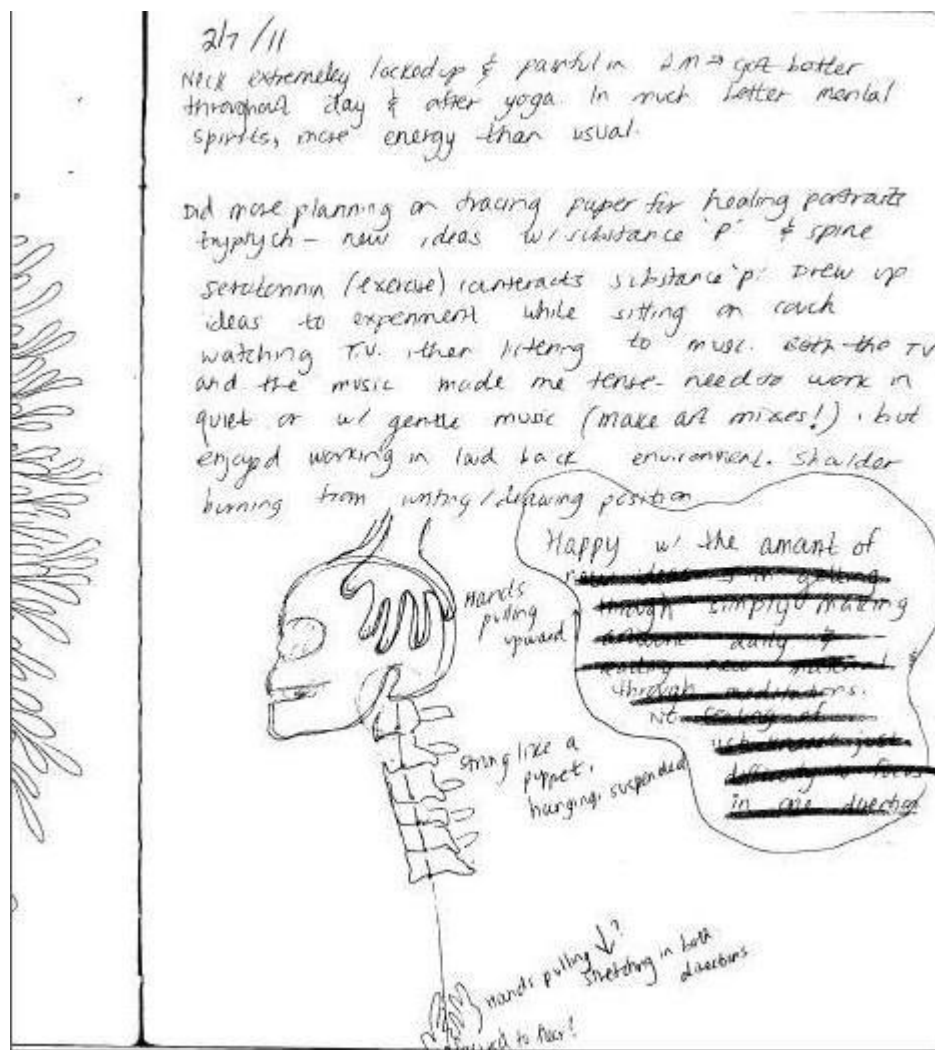 2/7/11
Neck extremeley locked up & painful in AM → got better
throughout day & after yoga. In much better mental
spirits, more energy than usual.
Did more planning on tracing paper for healing portraits
tryptych - new ideas w/ substance "P" & spine
(exercise) counteracts substance "p". Drew up
ideas to experiment while sitting on couch
watching T.V. then listening to music. Both the TV
and the music made me tense - need to work in
quiet or w/ gentle music (make art mixes!). but
enjoyed working in laid back environment. Shoulder
burning from writing/drawing position
Happy w/ the amount of
new ideas I'm getting
through simply making
artwork daily &
reading new material &
through meditations.
Not feeling of
just
difficulty to focus
in one direction
Hands
pulling
upward
string like a
puppet,
hanging, suspended
Hands pulling ↓?
stretching in both
directions
to floor!